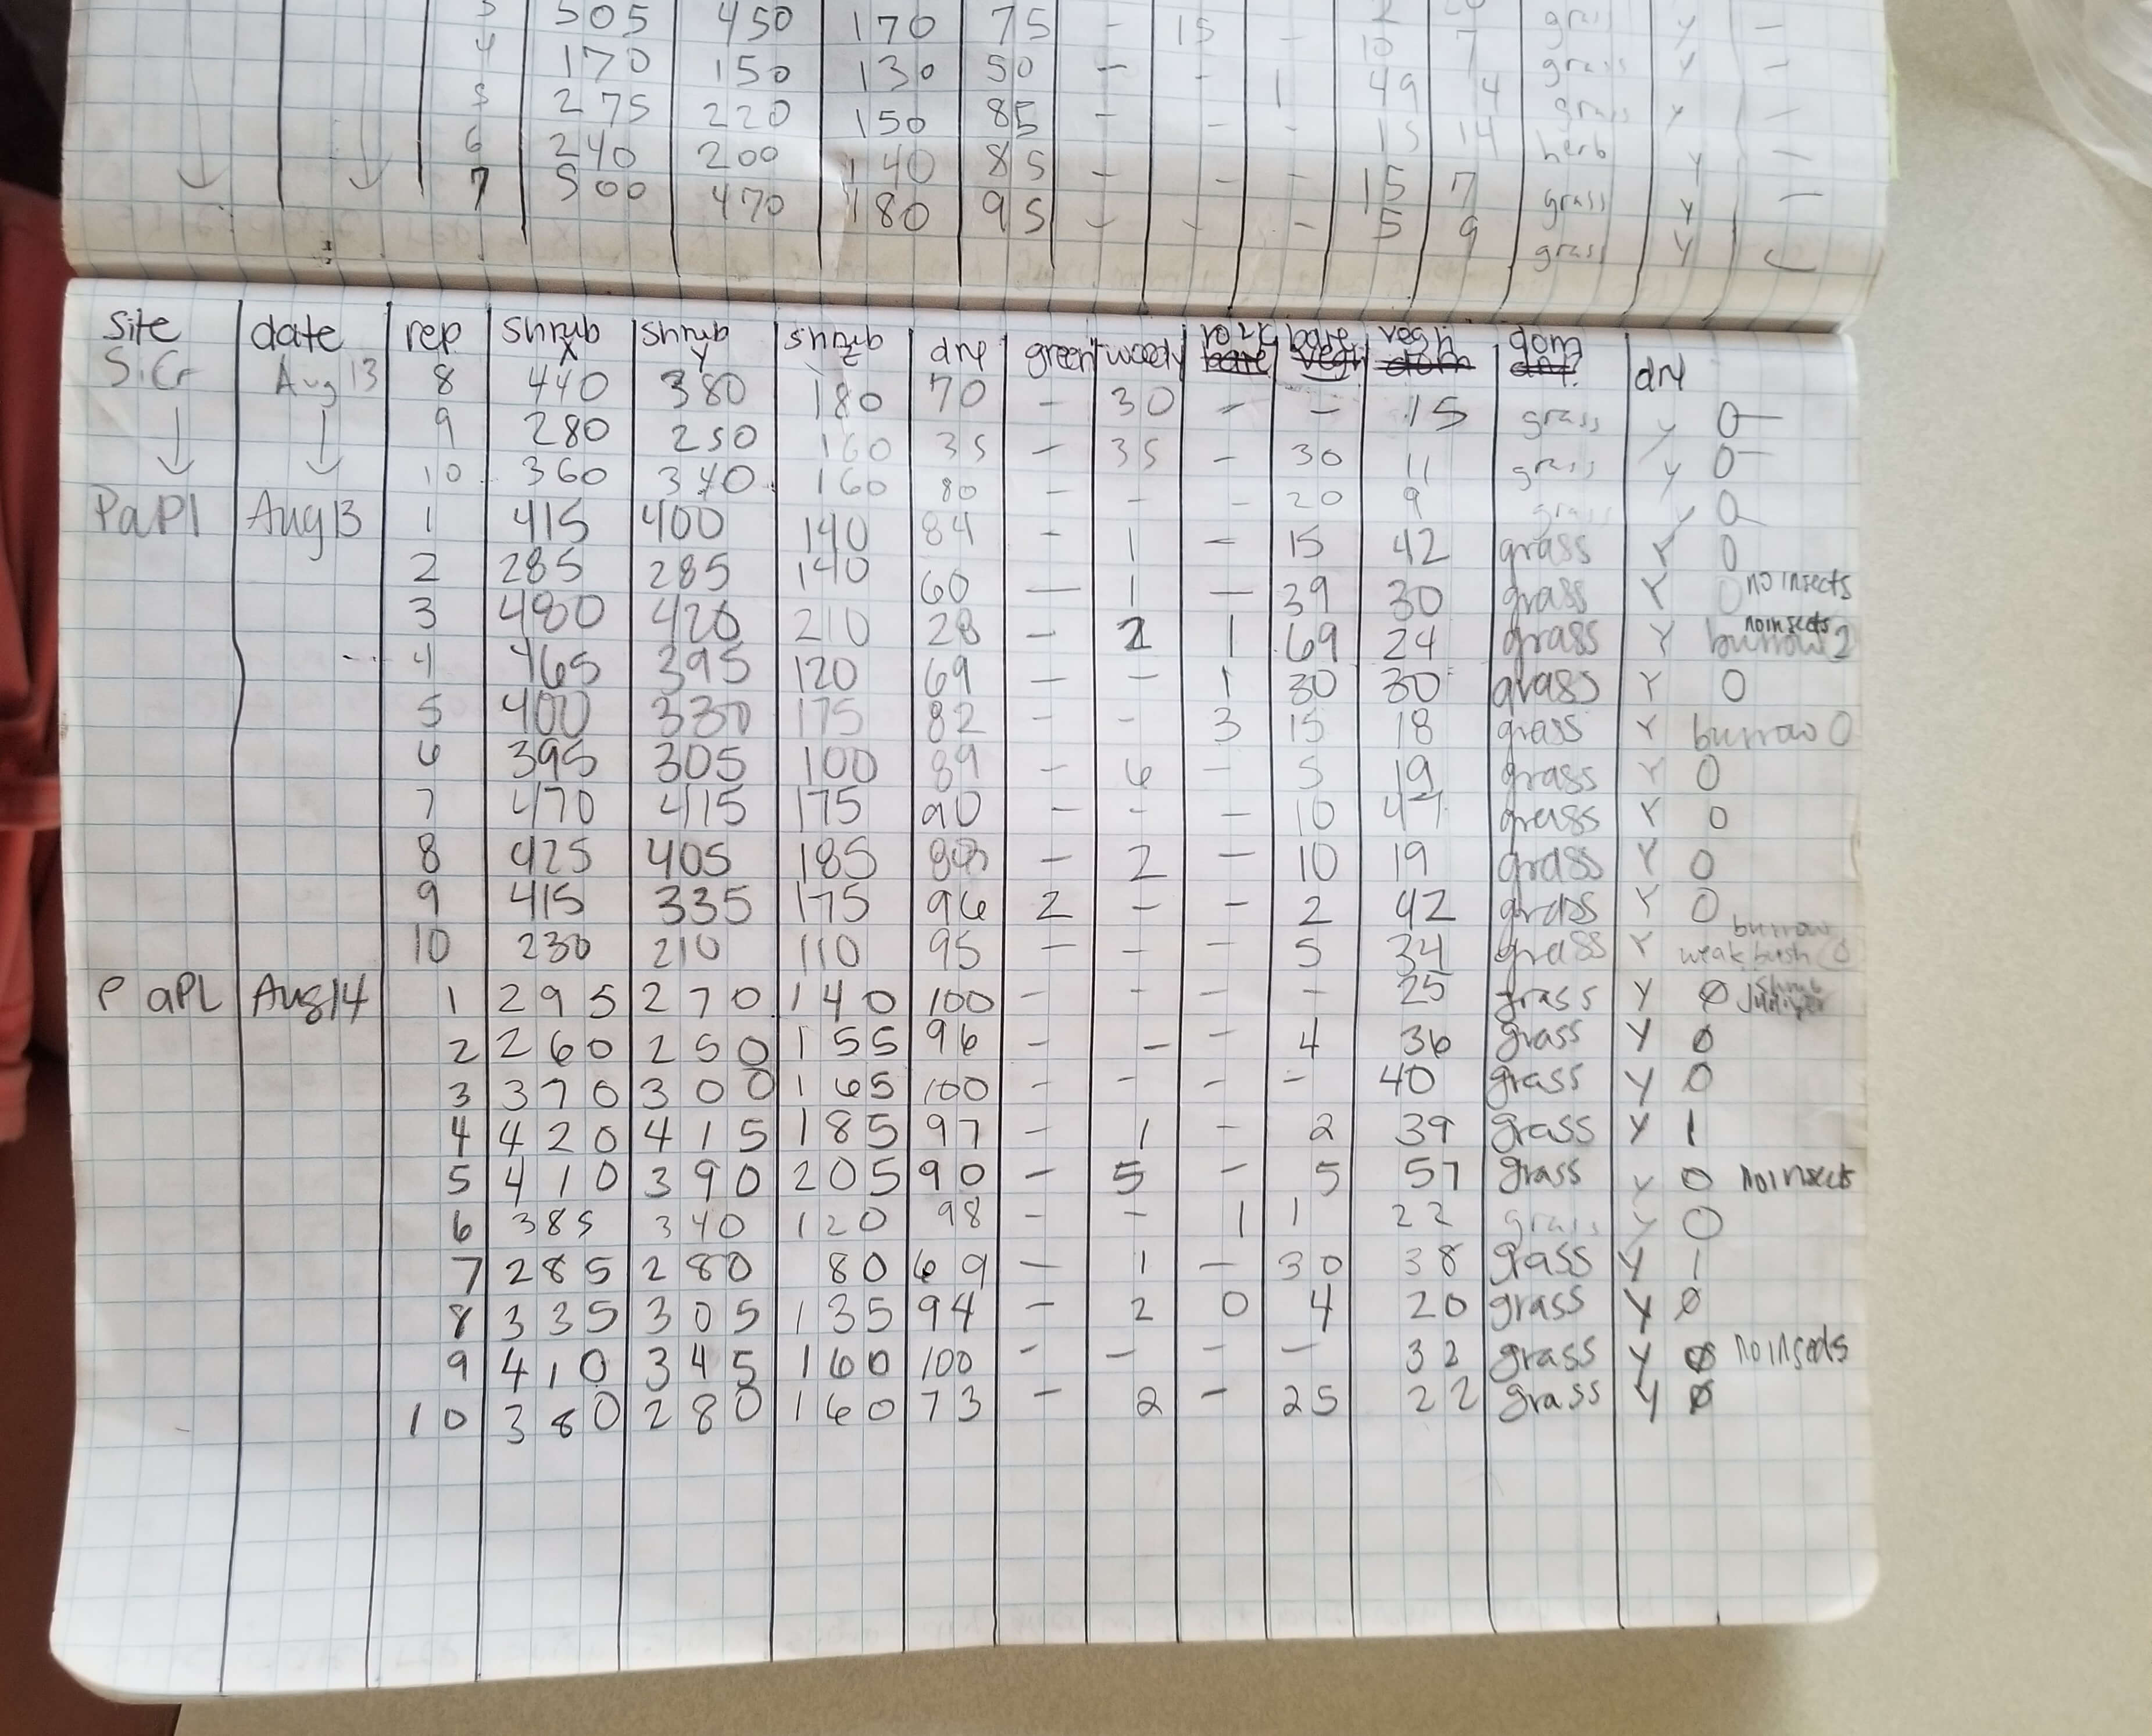 505 450 170 75 - 15 - grass y -
4 170 150 130 50 - - 10 7 grass y -
5 275 220 150 85 - - 1 49 4 grass y -
6 240 200 140 85 - - - 15 14 herb y -
7 500 470 180 95 - - - 15 7 grass y -
5 9 grass y
site date rep shrub X shrub Y shrub Z dry green woody rock bare veg h dom dry
SiCr Aug 13 8 440 380 180 70 - 30 - - 15 grass y 0
9 280 250 160 35 - 35 - 30 11 grass y 0
10 360 340 160 80 - - - 20 9 grass y 0
PaPl Aug 13 1 415 400 140 84 - 1 - 15 42 grass Y 0
2 285 285 140 60 - 1 - 39 30 grass Y 0 no insects
3 480 420 210 28 - 2 1 69 24 grass Y burrow 2 no insects
4 465 395 120 69 - - 1 30 30 grass Y 0
5 400 330 175 82 - - 3 15 18 grass Y burrow 0
6 395 305 100 89 - 6 - 5 19 grass Y 0
7 470 415 175 90 - - - 10 47 grass Y 0
8 425 405 185 - 2 - 10 19 grass Y 0
9 415 335 175 96 2 - - 2 42 grass Y 0
10 230 210 110 95 - - - 5 34 grass Y burrow weak bush 0
PaPL Aug 14 1 295 270 140 100 - - - - 25 grass y 0 shrub Juniper
2 260 250 155 96 - - - 4 36 grass y 0
3 370 300 165 100 - - - - 40 grass y 0
4 420 415 185 97 - 1 - 2 39 grass y 1
5 410 390 205 90 - 5 - 5 57 grass y 0 no insects
6 385 340 120 98 - - 1 1 22 grass y 0
7 285 280 80 69 - 1 - 30 38 grass y 1
8 335 305 135 94 - 2 0 4 20 grass y 0
9 410 345 160 100 - - - - 32 grass y 0 no insects
10 380 280 160 73 - 2 - 25 22 grass y 0